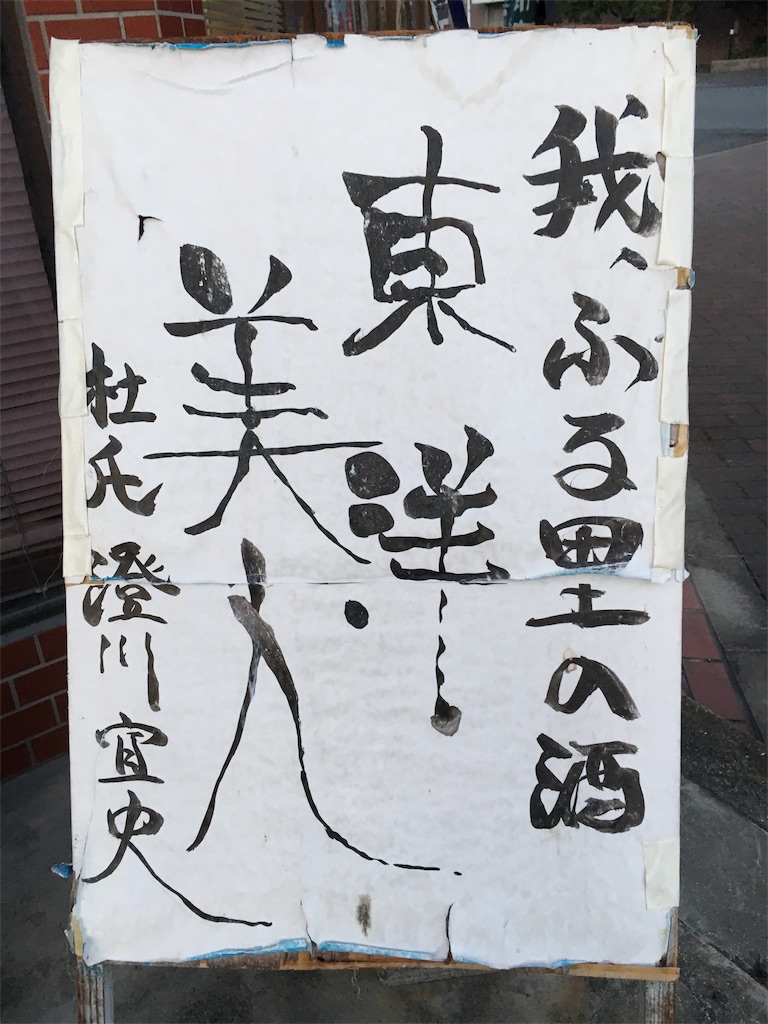 我、ふる里の酒
東洋
美人
杜氏 澄川 宜史